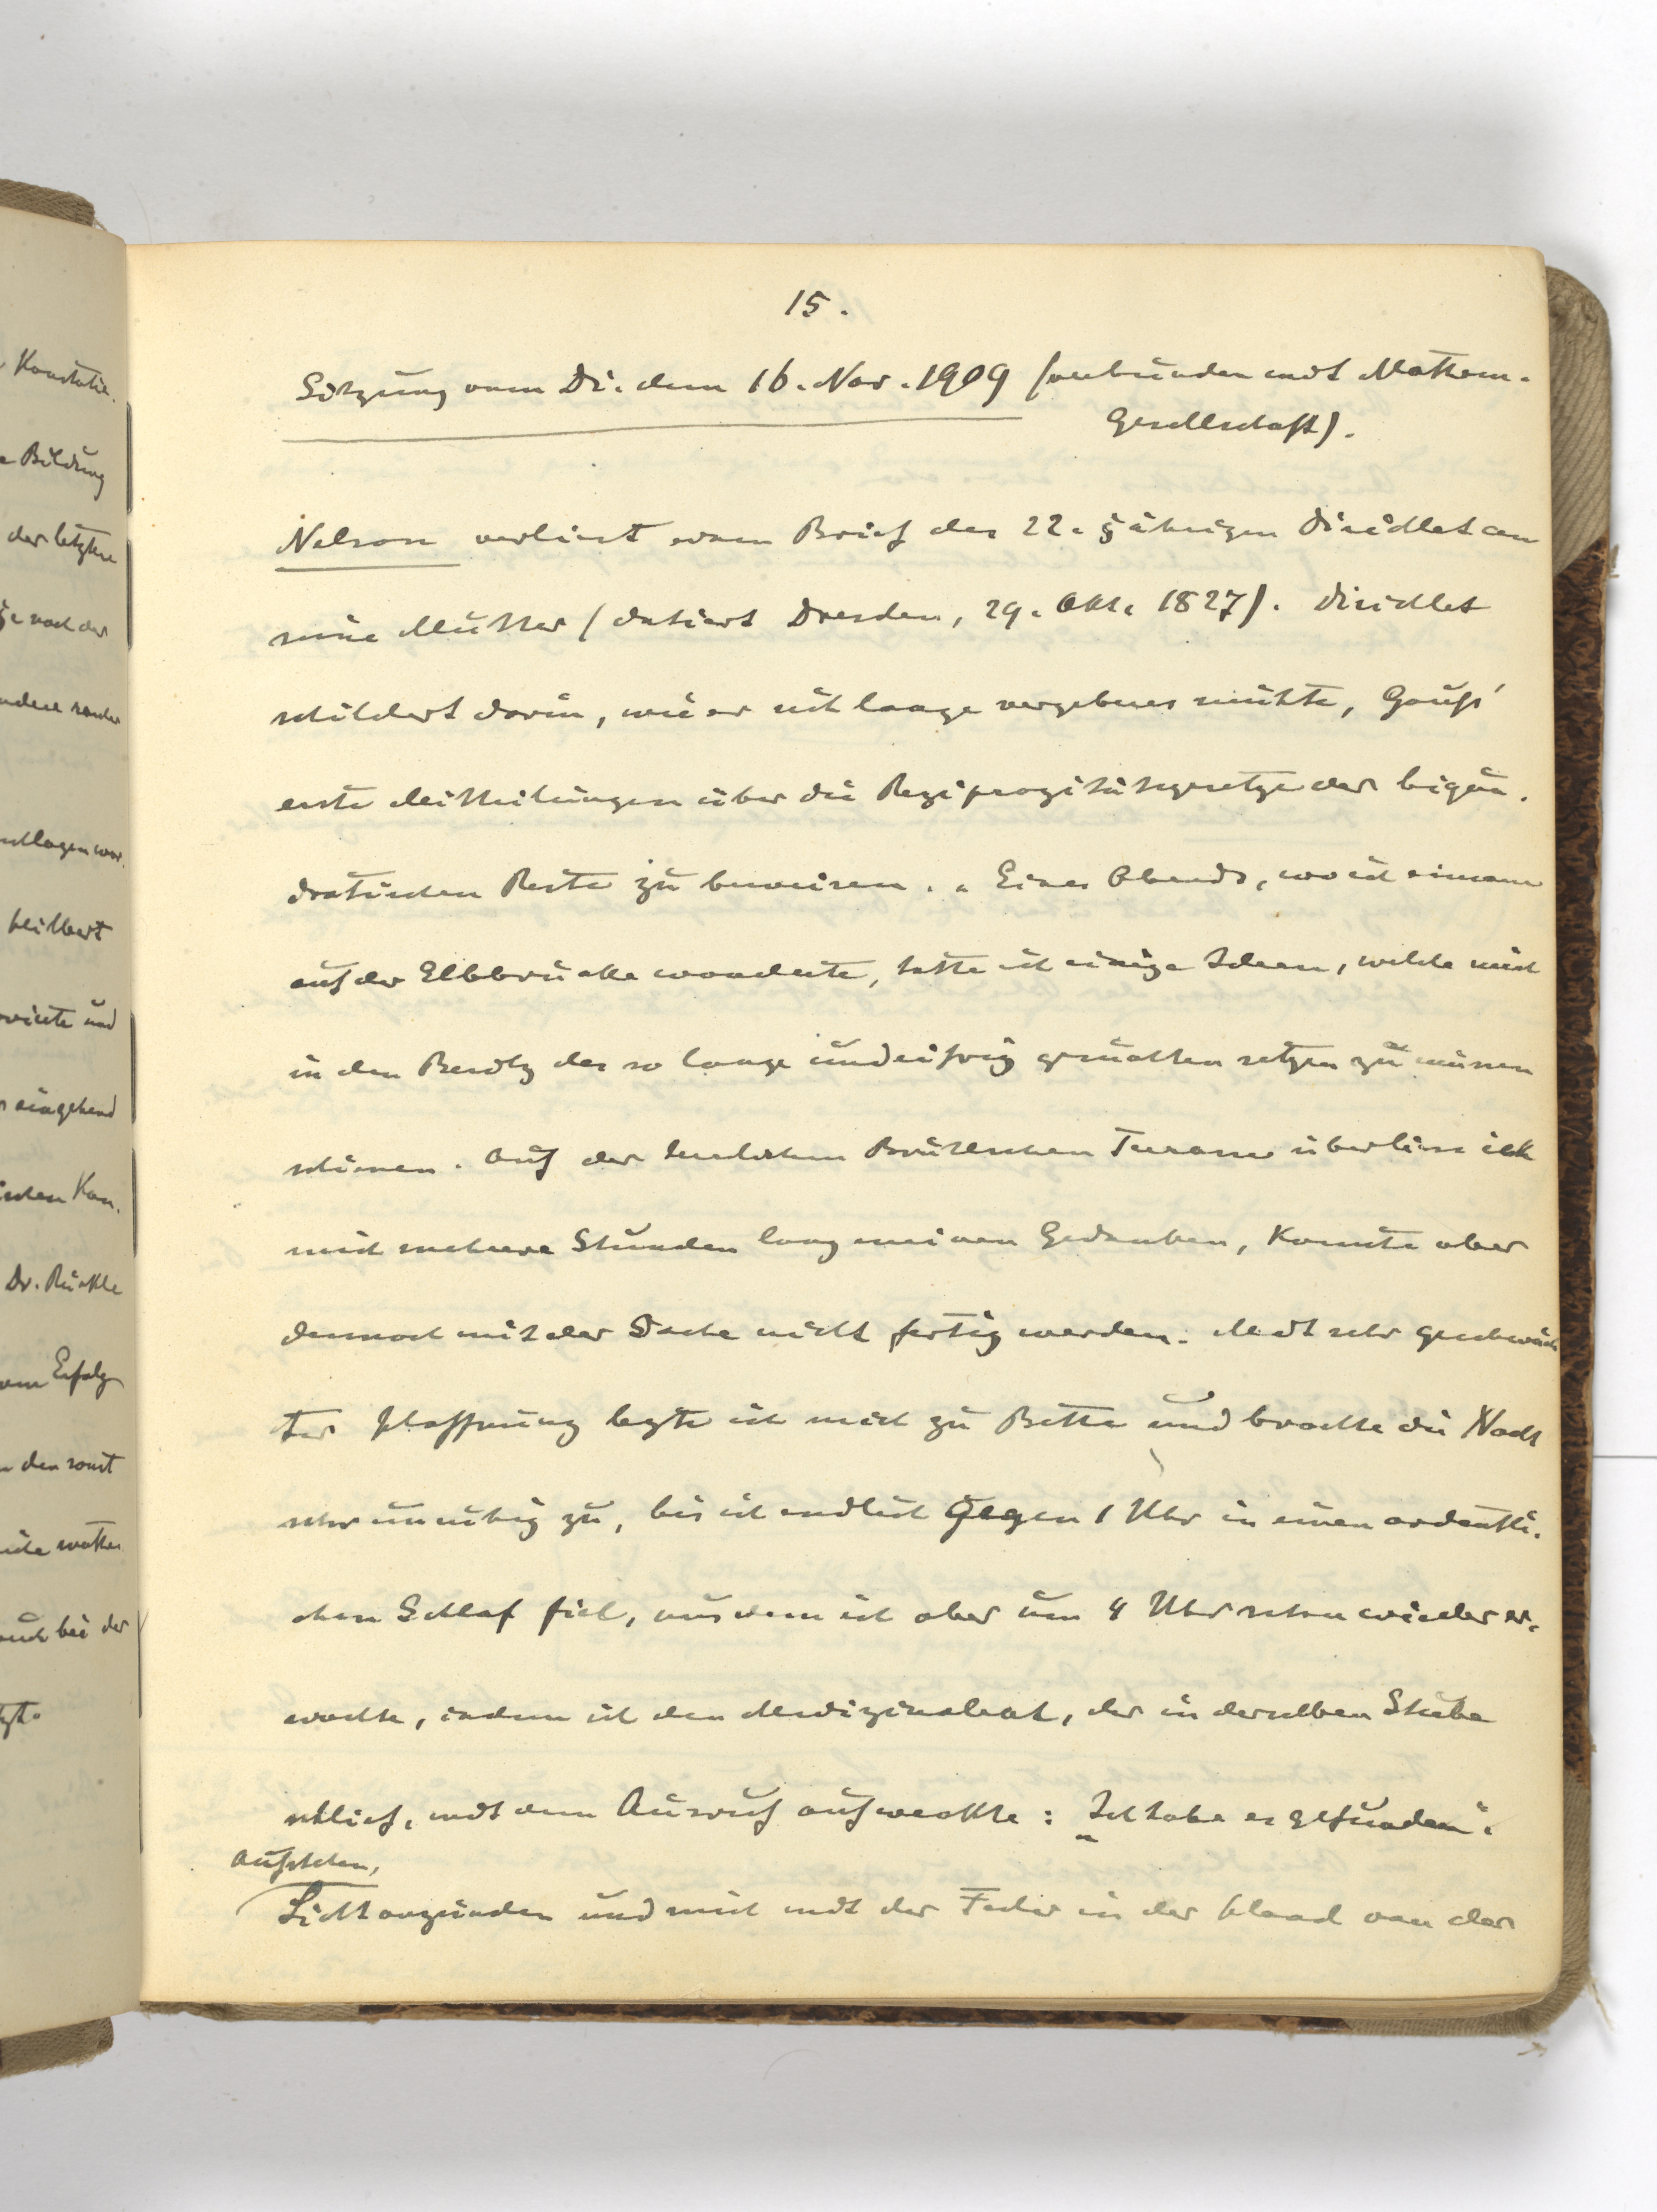 Konstatie-
Bildung
der letztere
nach der
andere
schlagen war.
Hilbert
und
eingehend
Kon-
Dr. Rückle
Erfolg
den sonst
auch bei der
15.
Sitzung vom Di. dem 16. Nov. 1909 (verbunden mit Mathem.
Gesellschaft).
Nelson verliest einen Brief des 22-jährigen Dirichlet an
seine Mutter (datiert Dresden, 29. Okt. 1827). Dirichlet
schildert darin, wie er sich lange vergebens mühte, Gauß'
erste Mitteilungen über die Reziprozitätsgesetze der biqua-
dratischen Reste zu beweisen. „Eines Abends, wo ich einsam
auf der Elbbrücke wanderte, hatte ich einige Ideen, welche mich
in den Besitz des so lange und eifrig gesuchten setzen zu müssen
schienen. Auf der herrlichen Brühlschen Terrasse überliess ich
mich mehrere Stunden lang meinen Gedanken, konnte aber
dennoch mit der Sache nicht fertig werden. Mit sehr geschwäch-
ter Hoffnung legte ich mich zu Bette und brachte die Nacht
sehr unruhig zu, bis ich endlich gegen 1 Uhr in einen ordentli-
chen Schlaf fiel, aus dem ich aber um 4 Uhr schon wieder er-
wachte, indem ich den Medizinalrat, der in derselben Stube
schlief, mit dem Ausruf aufweckte: „Ich habe es gefunden".
Aufstehen,
Licht anzünden und mich mit der Feder in der Hand von der